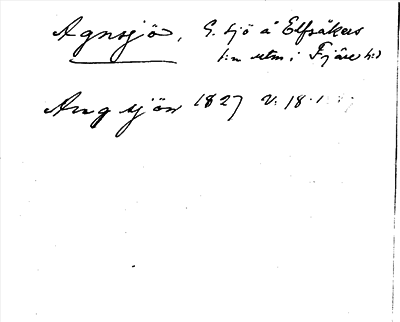 Agnsjö, G. sjö å Elfsåkers
s:n utm i Fjäre h:d
Angsjön 1827 v. 18.1